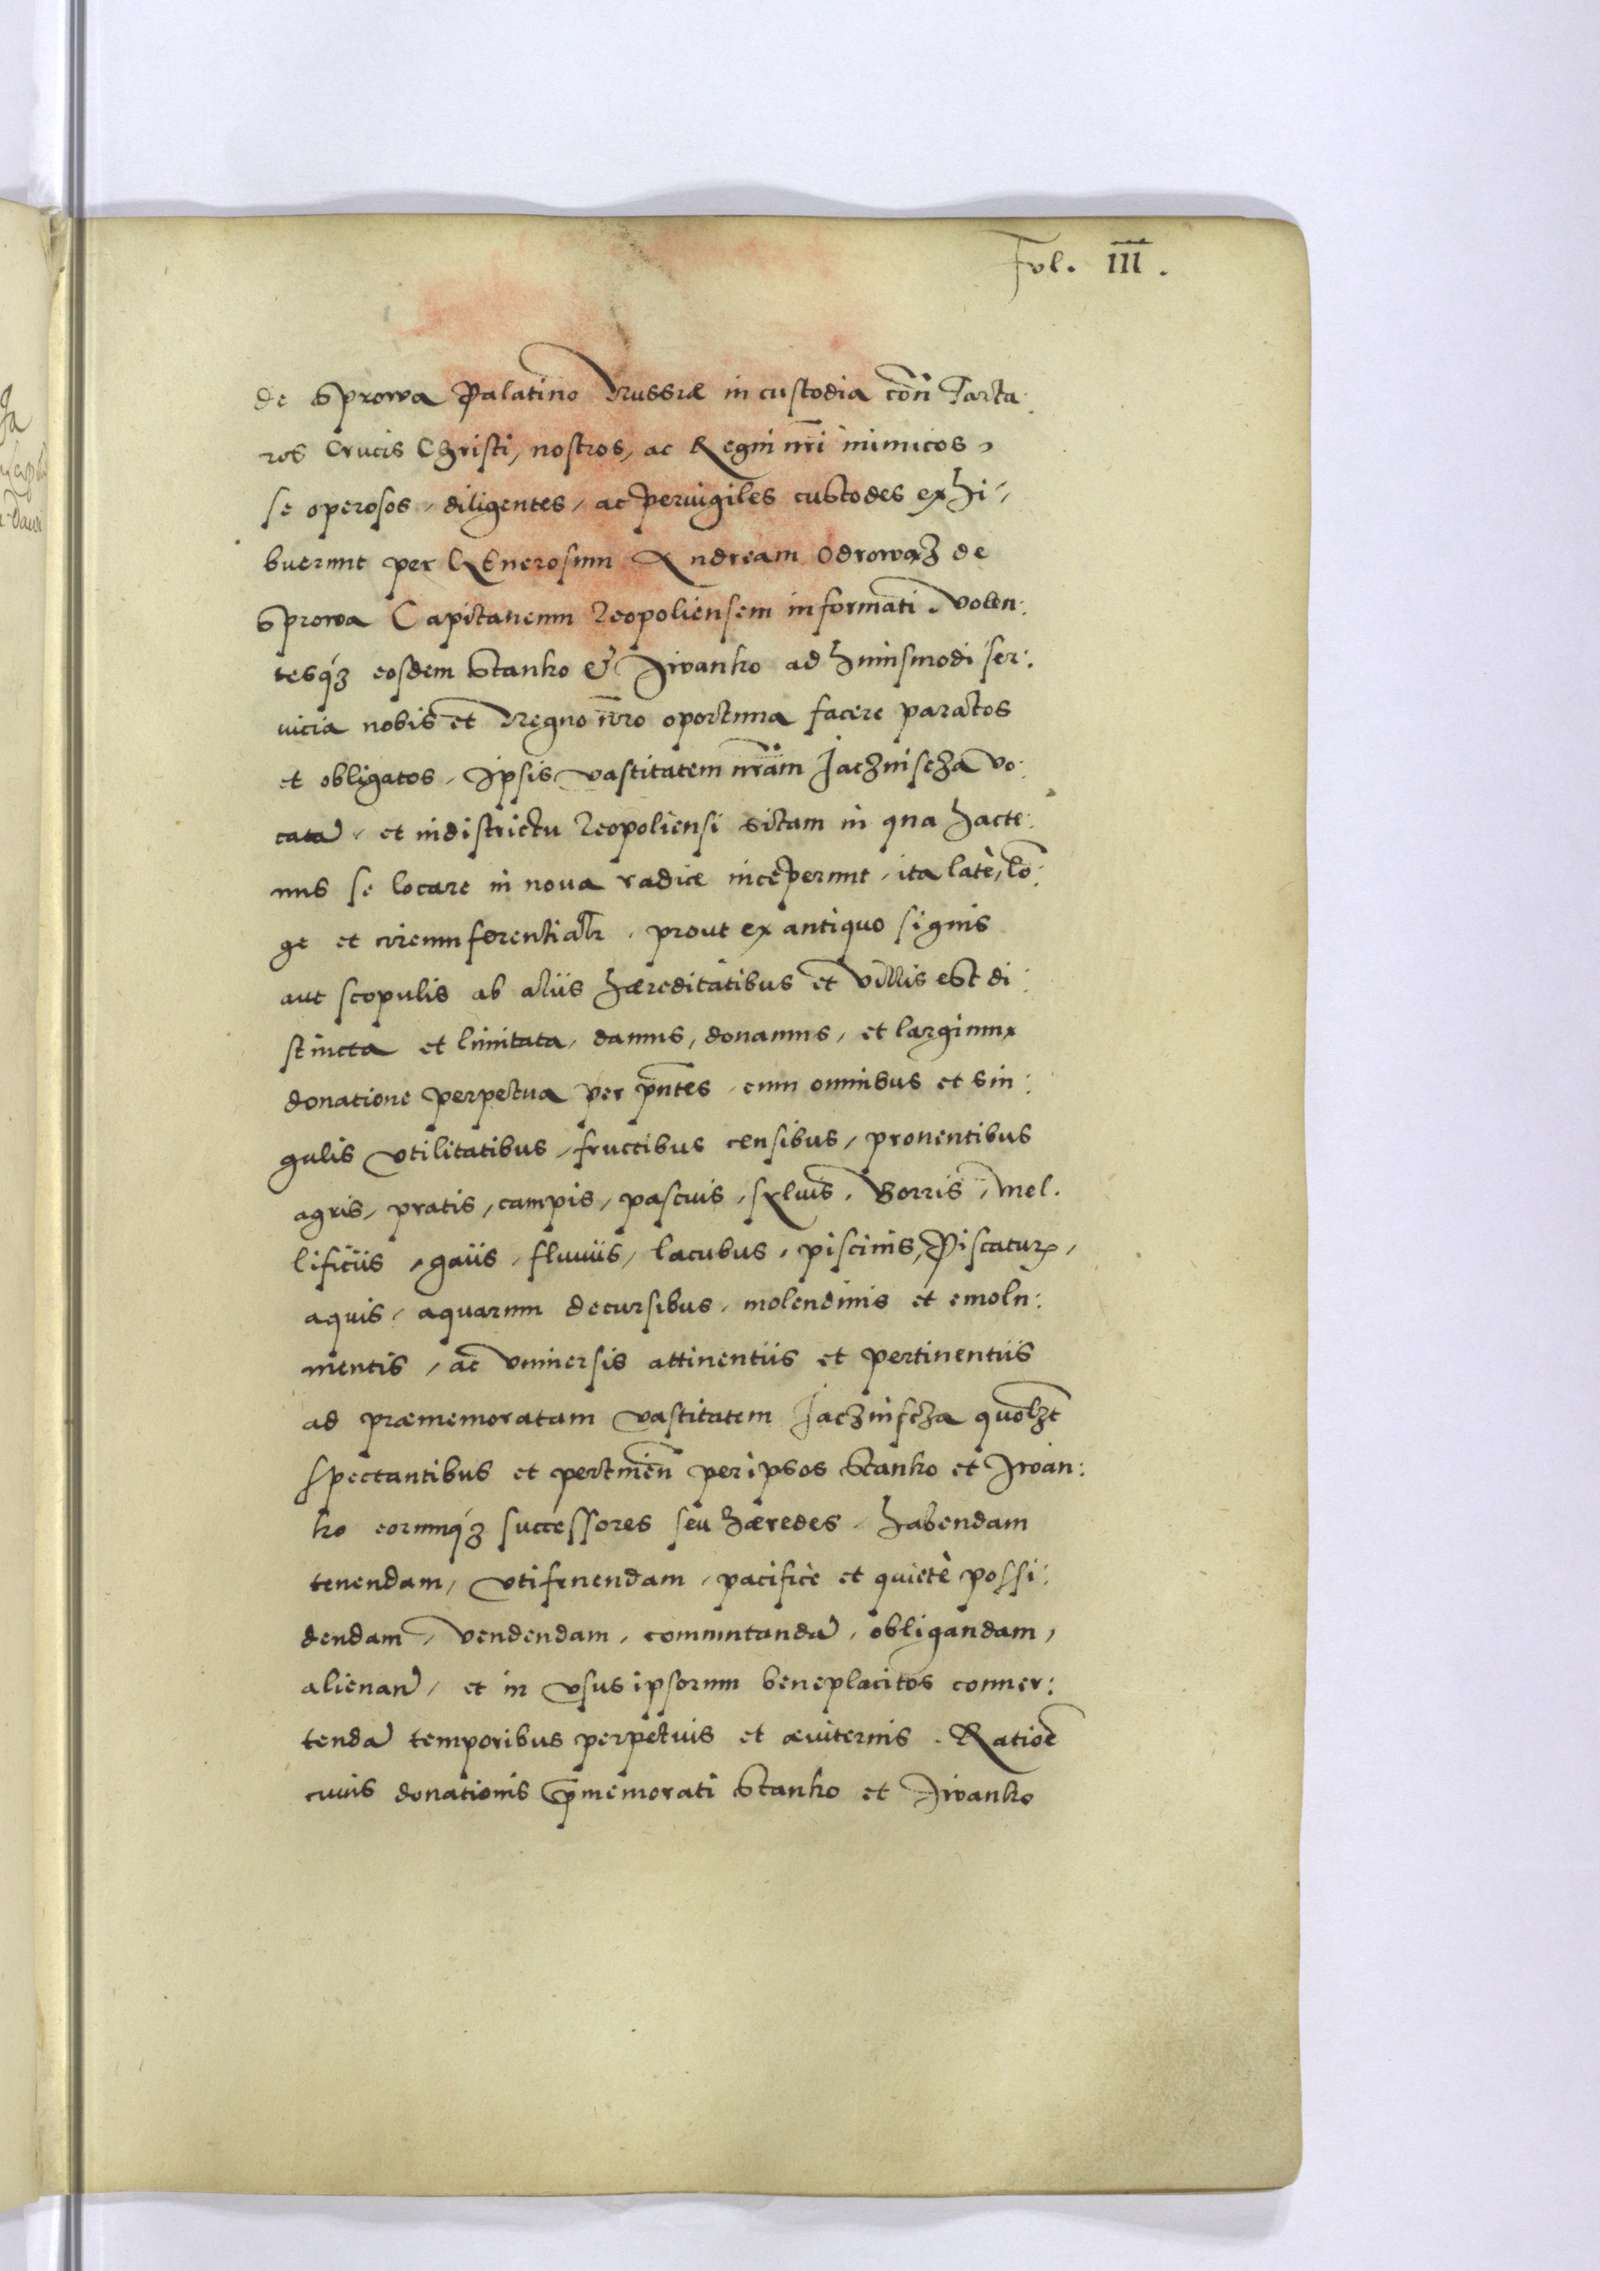 Fol. III.
de Sprowa Palatino Russiæ in custodia cōn Tarta:
ros Crucis Christi, nostros, ac Regni nr̄i inimicos,
se operosos, diligentes, ac pervigiles custodes exhi:
buerunt per GEnerosum Andream Odrowąz de
Sprowa Capitaneum Leopoliensem informati. Volen:
tesq́3 eosdem Stanko & Iwanko ad huiusmodi ser:
uicia nobis et Regno nr̄o oportuna facere paratos
et obligatos, Ipsis vastitatem nr̄am Jaczniscza vo:
catā, et in districtu Leopoliensi sitam in qua hacte:
nus se locare in noua radice inceperunt, ita latè, lō:
ge et circumferentialr, prout ex antiquo signis
aut scopulis ab aliis hæreditatibus et villis est di:
stincta et limitata, damus, donamus, et largimur
donatione perpetua per pn̄tes, cum omnibus et sin:
gulis vtilitatibus, fructibus censibus, prouentibus
agris, pratis, campis, pascuis, syluis, Borris, Mel.
lificiis, gaiis, fluuiis, lacubus, piscinis, Piscatur,
aquis, aquarum decursibus, molendinis et emolu:
mentis, ac vniuersis attinentiis et pertinentiis
ad præmemoratam vastitatem Jacznifcza quolzt
spectantibus et pertinen̄ per ipsos Stanko et Iwan:
ko eorumq́3 successores seu hæredes, habendam
tenendam, vtifruendam, pacificè et quietè possi:
dendam, vendendam, commutandā, obligandam,
alienan̄, et in vsus ipsorum beneplacitos conuer:
tendā temporibus perpetuis et æuiternis. Ratiōe
cuius donationis p̄memorati Stanko et Iwanko